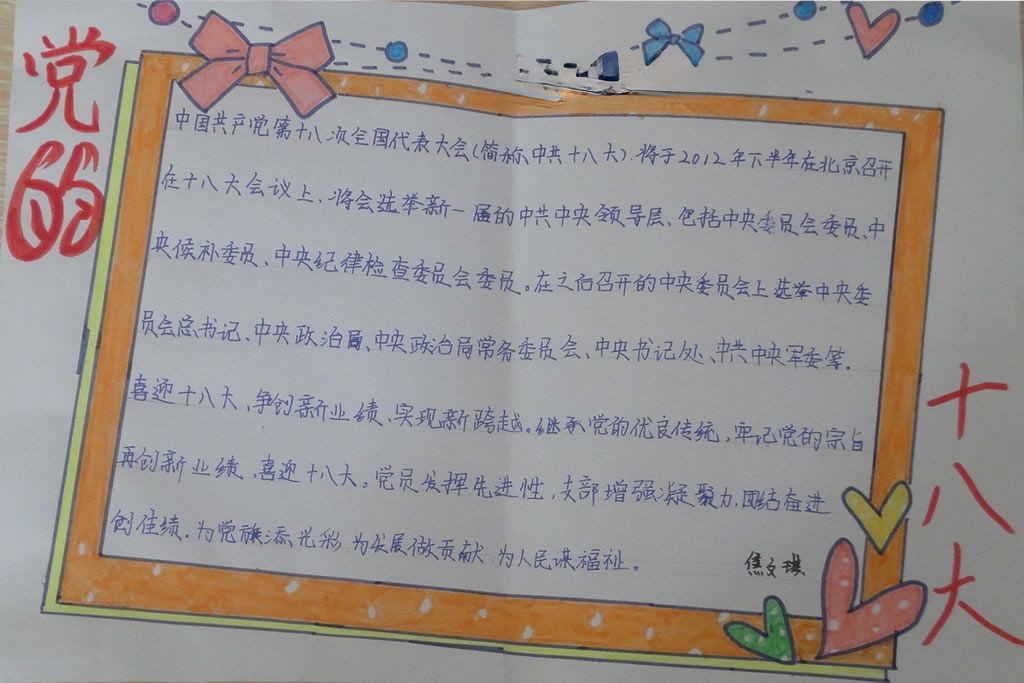 党的
中国共产党第十八次全国代表大会(简称、中共十八大)将于2012年下半年在北京召开
在十八大会议上、将会选举新一届的中共中央领导层、包括中央委员会委员、中
央候补委员、中央纪律检查委员会委员。在之后召开的中央委员会上选举中央委
员会总书记、中央政治局、中央政治局常务委员会、中央书记处、中共中央军委等.
喜迎十八大、争创新业绩、实现新跨越。继承党的优良传统,牢记党的宗旨
再创新业绩,喜迎十八大。党员发挥先进性,支部增强凝聚力,团结奋进
创佳绩.为党旗添光彩 为发展做贡献 为人民谋福祉。
焦文琪
十八大